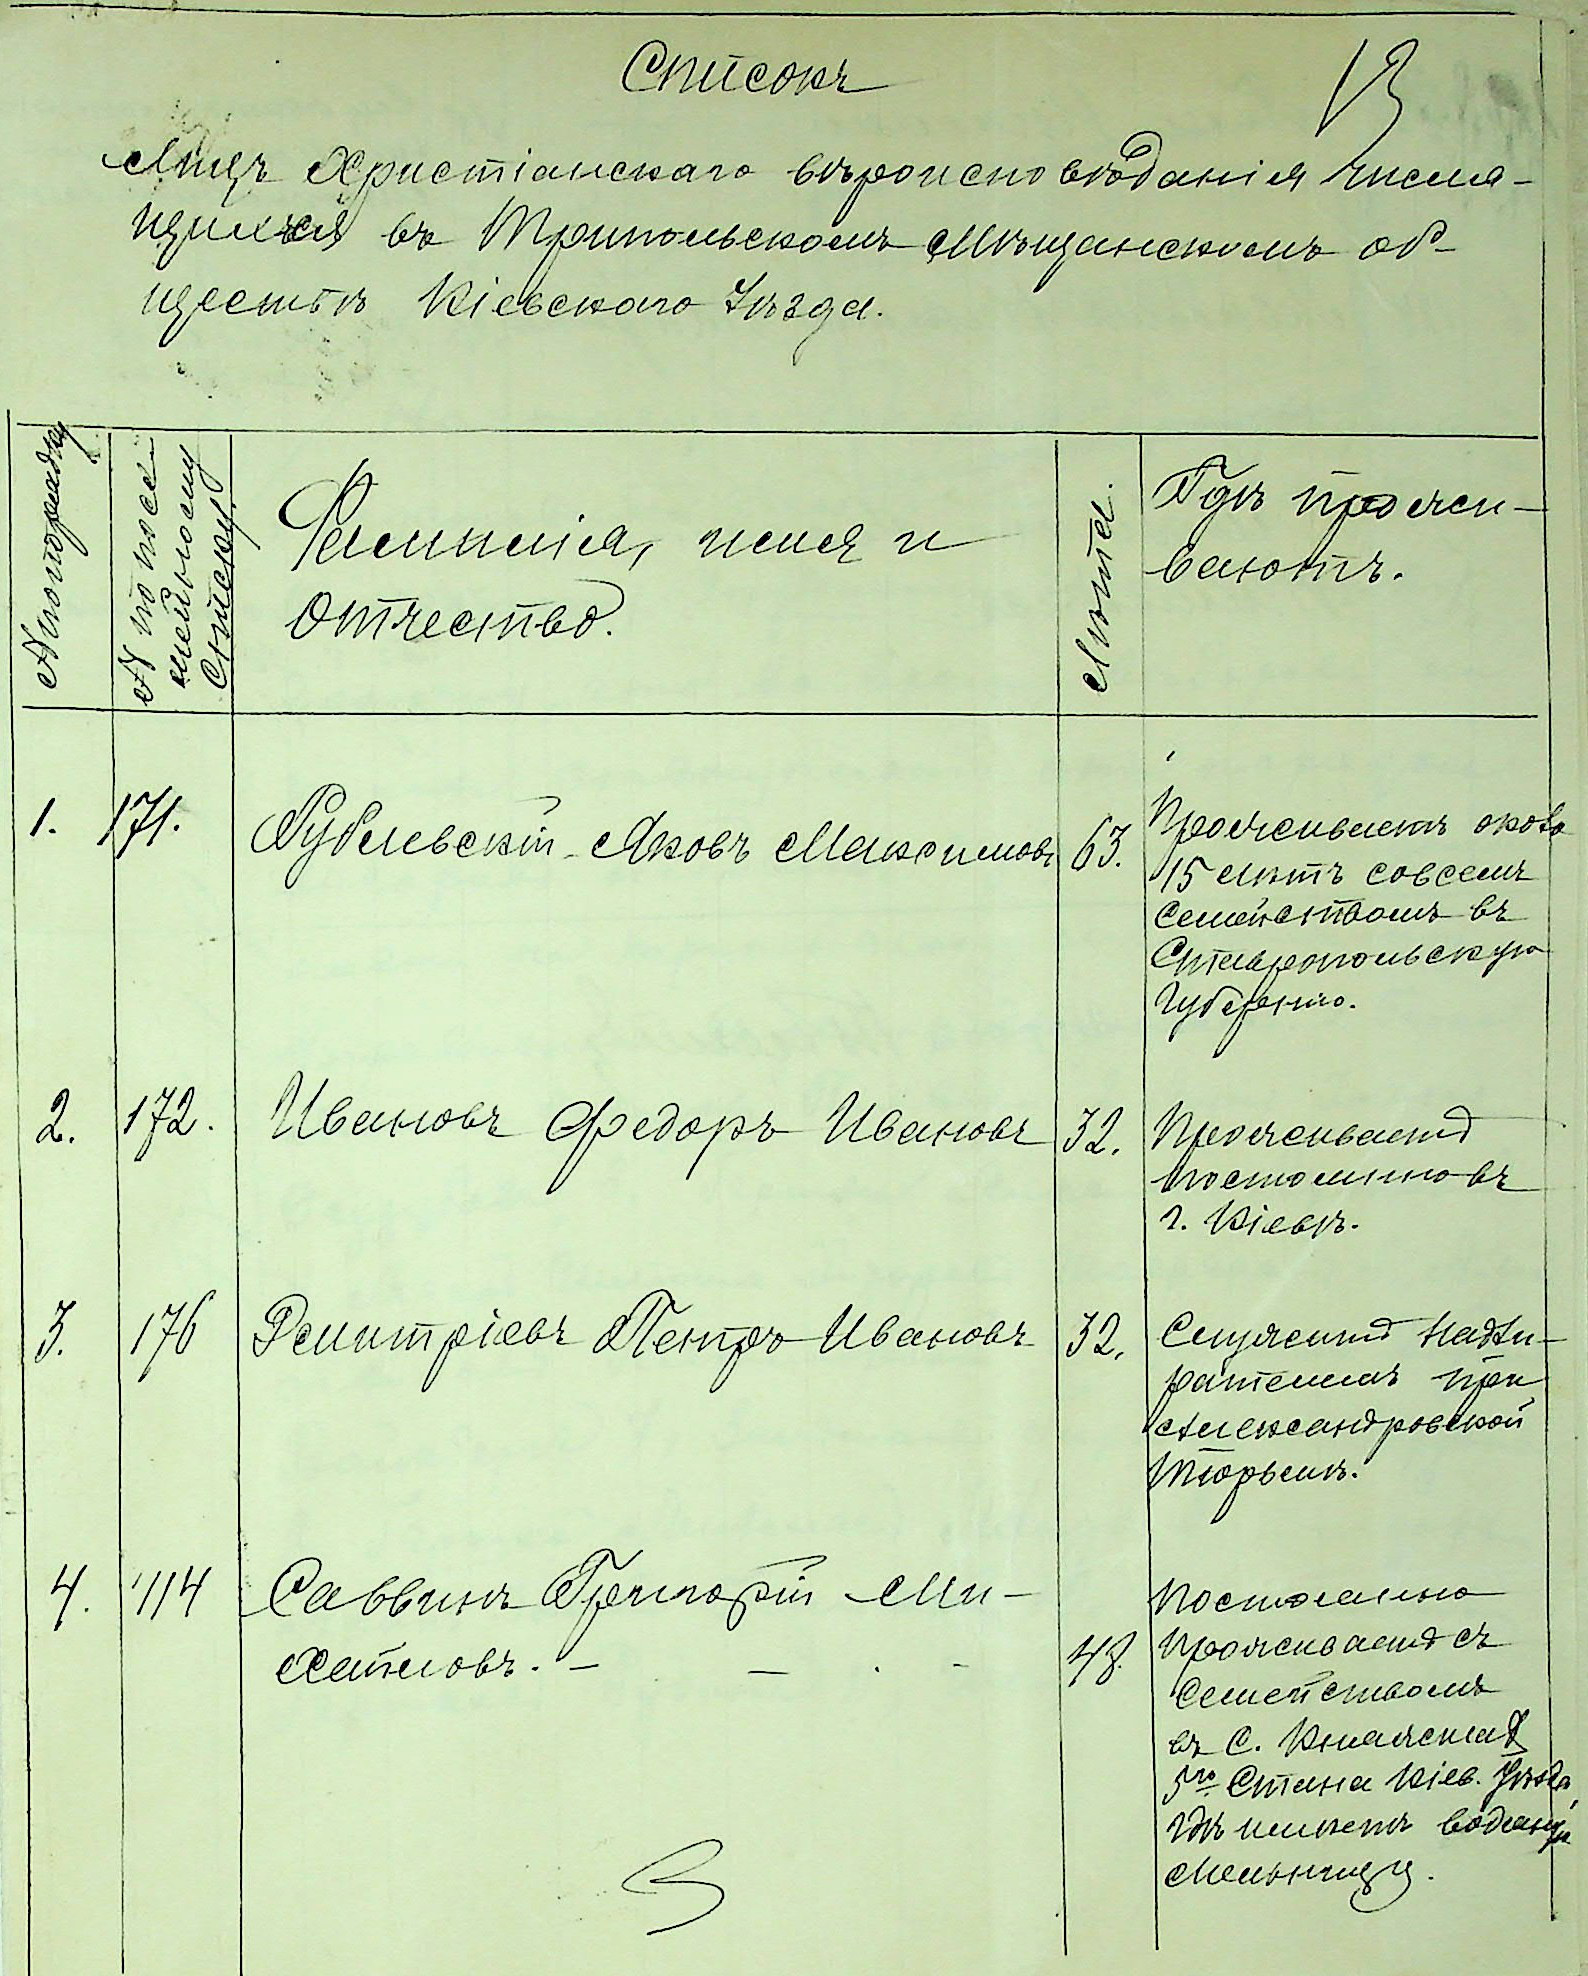 Списокъ
13
Лицъ Христіанскаго вѣроисповѣданія числя-
щихся въ Трипольскомъ Мѣщанскомъ об-
ществѣ Кіевскаго Уѣзда.
№ по порядку
№ по посе-
мейному
списку.
Фамилія, имя и
отчество.
Лѣта.
Гдѣ прожи-
ваютъ.
1.
171.
Рублевскій Яковъ Максимовъ
63.
Проживаетъ около
15 лѣтъ совсемъ
семействомъ въ
Ставропольскую
Губернію.
2.
172.
Ивановъ Федоръ Ивановъ
32.
Проживаетъ
постоянно въ
г. Кіевѣ.
3.
176
Дмитріевъ Петръ Ивановъ
32.
Служитъ надзи-
рателемъ при
Александровской
Тюрьмѣ.
4.
114
Саввинъ Григорій Ми-
хайловъ. -
48.
Постоянно
проживаетъ съ
семействомъ
въ С.
5го Стана Кіев. Уѣзда,
гдѣ имѣетъ водяную
мельницу.